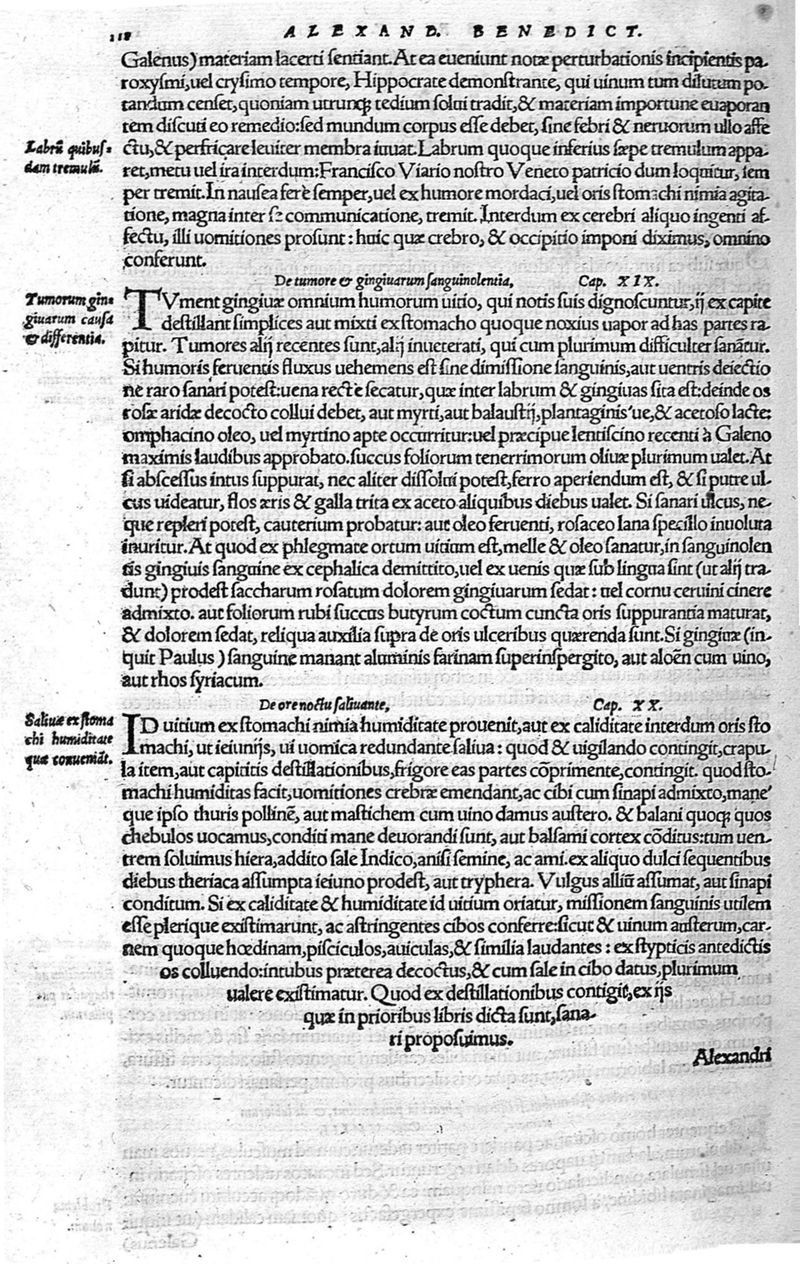 118
ALEXAND. BENEDICT.
Galenus) materiam lacerti sentiant. At ea eueniunt notæ perturbationis incipientis pa-
roxysmi, uel crysimo tempore, Hippocrate demonstrante, qui uinum tum dilutum po-
tandum censet, quoniam utrunq; tedium solui tradit, & materiam importune euaporan
tem discuti eo remedio: sed mundum corpus esse debet, sine febri & neruorum ullo affe
Labrũ quibus-
dam tremulũ.
ctu, & perfricare leuiter membra iuuat. Labrum quoque inferius sæpe tremulum appa-
ret, metu uel ira interdum: Francisco Viario nostro Veneto patricio dum loquitur, sem
per tremit. In nausea ferè semper, uel ex humore mordaci, uel oris stomachi nimia agita-
tione, magna inter se communicatione, tremit. Interdum ex cerebri aliquo ingenti af-
fectu, illi uomitiones prosunt: huic quæ crebro, & occipitio imponi diximus, omnino
conferunt.
De tumore & gingiuarum sanguinolentia, Cap. XIX.
Tumorum gin-
giuarum causa
& differentia.
TVment gingiuæ omnium humorum uitio, qui notis suis dignoscuntur, ij ex capite
destillant simplices aut mixti ex stomacho quoque noxius uapor ad has partes ra-
pitur. Tumores alij recentes sunt, alij inueterati, qui cum plurimum difficulter sanãtur.
Si humoris feruentis fluxus uehemens est sine dimissione sanguinis, aut uentris deiectio
ne raro sanari potest: uena rectè secatur, quæ inter labrum & gingiuas sita est: deinde os
rosæ aridæ decocto collui debet, aut myrti, aut balaustij, plantaginis'ue, & acetoso lacte:
omphacino oleo, uel myrtino apte occurritur: uel præcipue lentiscino recenti à Galeno
maximis laudibus approbato. succus foliorum tenerrimorum oliuæ plurimum ualet. At
si abscessus intus suppurat, nec aliter dissolui potest, ferro aperiendum est, & si putre ul-
cus uideatur, flos æris & galla trita ex aceto aliquibus diebus ualet. Si sanari ulcus, ne-
que repleri potest, cauterium probatur: aut oleo feruenti, rosaceo lana specillo inuoluta
inuritur. At quod ex phlegmate ortum uitium est, melle & oleo sanatur, in sanguinolen
tis gingiuis sanguine ex cephalica demittito, uel ex uenis quæ sub lingua sint (ut alij tra-
dunt) prodest saccharum rosatum dolorem gingiuarum sedat: uel cornu ceruini cinere
admixto. aut foliorum rubi succus butyrum coctum cuncta oris suppurantia maturat,
& dolorem sedat, reliqua auxilia supra de oris ulceribus quærenda sunt. Si gingiuæ (in-
quit Paulus) sanguine manant aluminis farinam superinspergito, aut aloën cum uino,
aut rhos syriacum.
De ore noctu saliuante, Cap. XX.
Saliuæ ex stoma
chi humiditate
quæ conueniãt.
ID uitium ex stomachi nimia humiditate prouenit, aut ex caliditate interdum oris sto
machi, ut ieiunijs, ui uomica redundante saliua: quod & uigilando contingit, crapu-
la item, aut capititis destillationibus, frigore eas partes cõprimente, contingit. quod sto-
machi humiditas facit, uomitiones crebræ emendant, ac cibi cum sinapi admixto, mane
que ipso thuris pollinẽ, aut mastichem cum uino damus austero. & balani quoq; quos
chebulos uocamus, conditi mane deuorandi sunt, aut balsami cortex cõditus: tum uen-
trem soluimus hiera, addito sale Indico, anisi semine, ac ami. ex aliquo dulci sequentibus
diebus theriaca assumpta ieiuno prodest, aut tryphera. Vulgus alliũ assumat, aut sinapi
conditum. Si ex caliditate & humiditate id uitium oriatur, missionem sanguinis utilem
esse plerique existimarunt, ac astringentes cibos conferre: sicut & uinum austerum, car-
nem quoque hœdinam, pisciculos, auiculas, & similia laudantes: ex stypticis antedictis
os colluendo: intubus præterea decoctus, & cum sale in cibo datus, plurimum
ualere existimatur. Quod ex destillationibus contigit, ex ijs
quæ in prioribus libris dicta sunt, sana-
ri proposuimus.
Alexandri